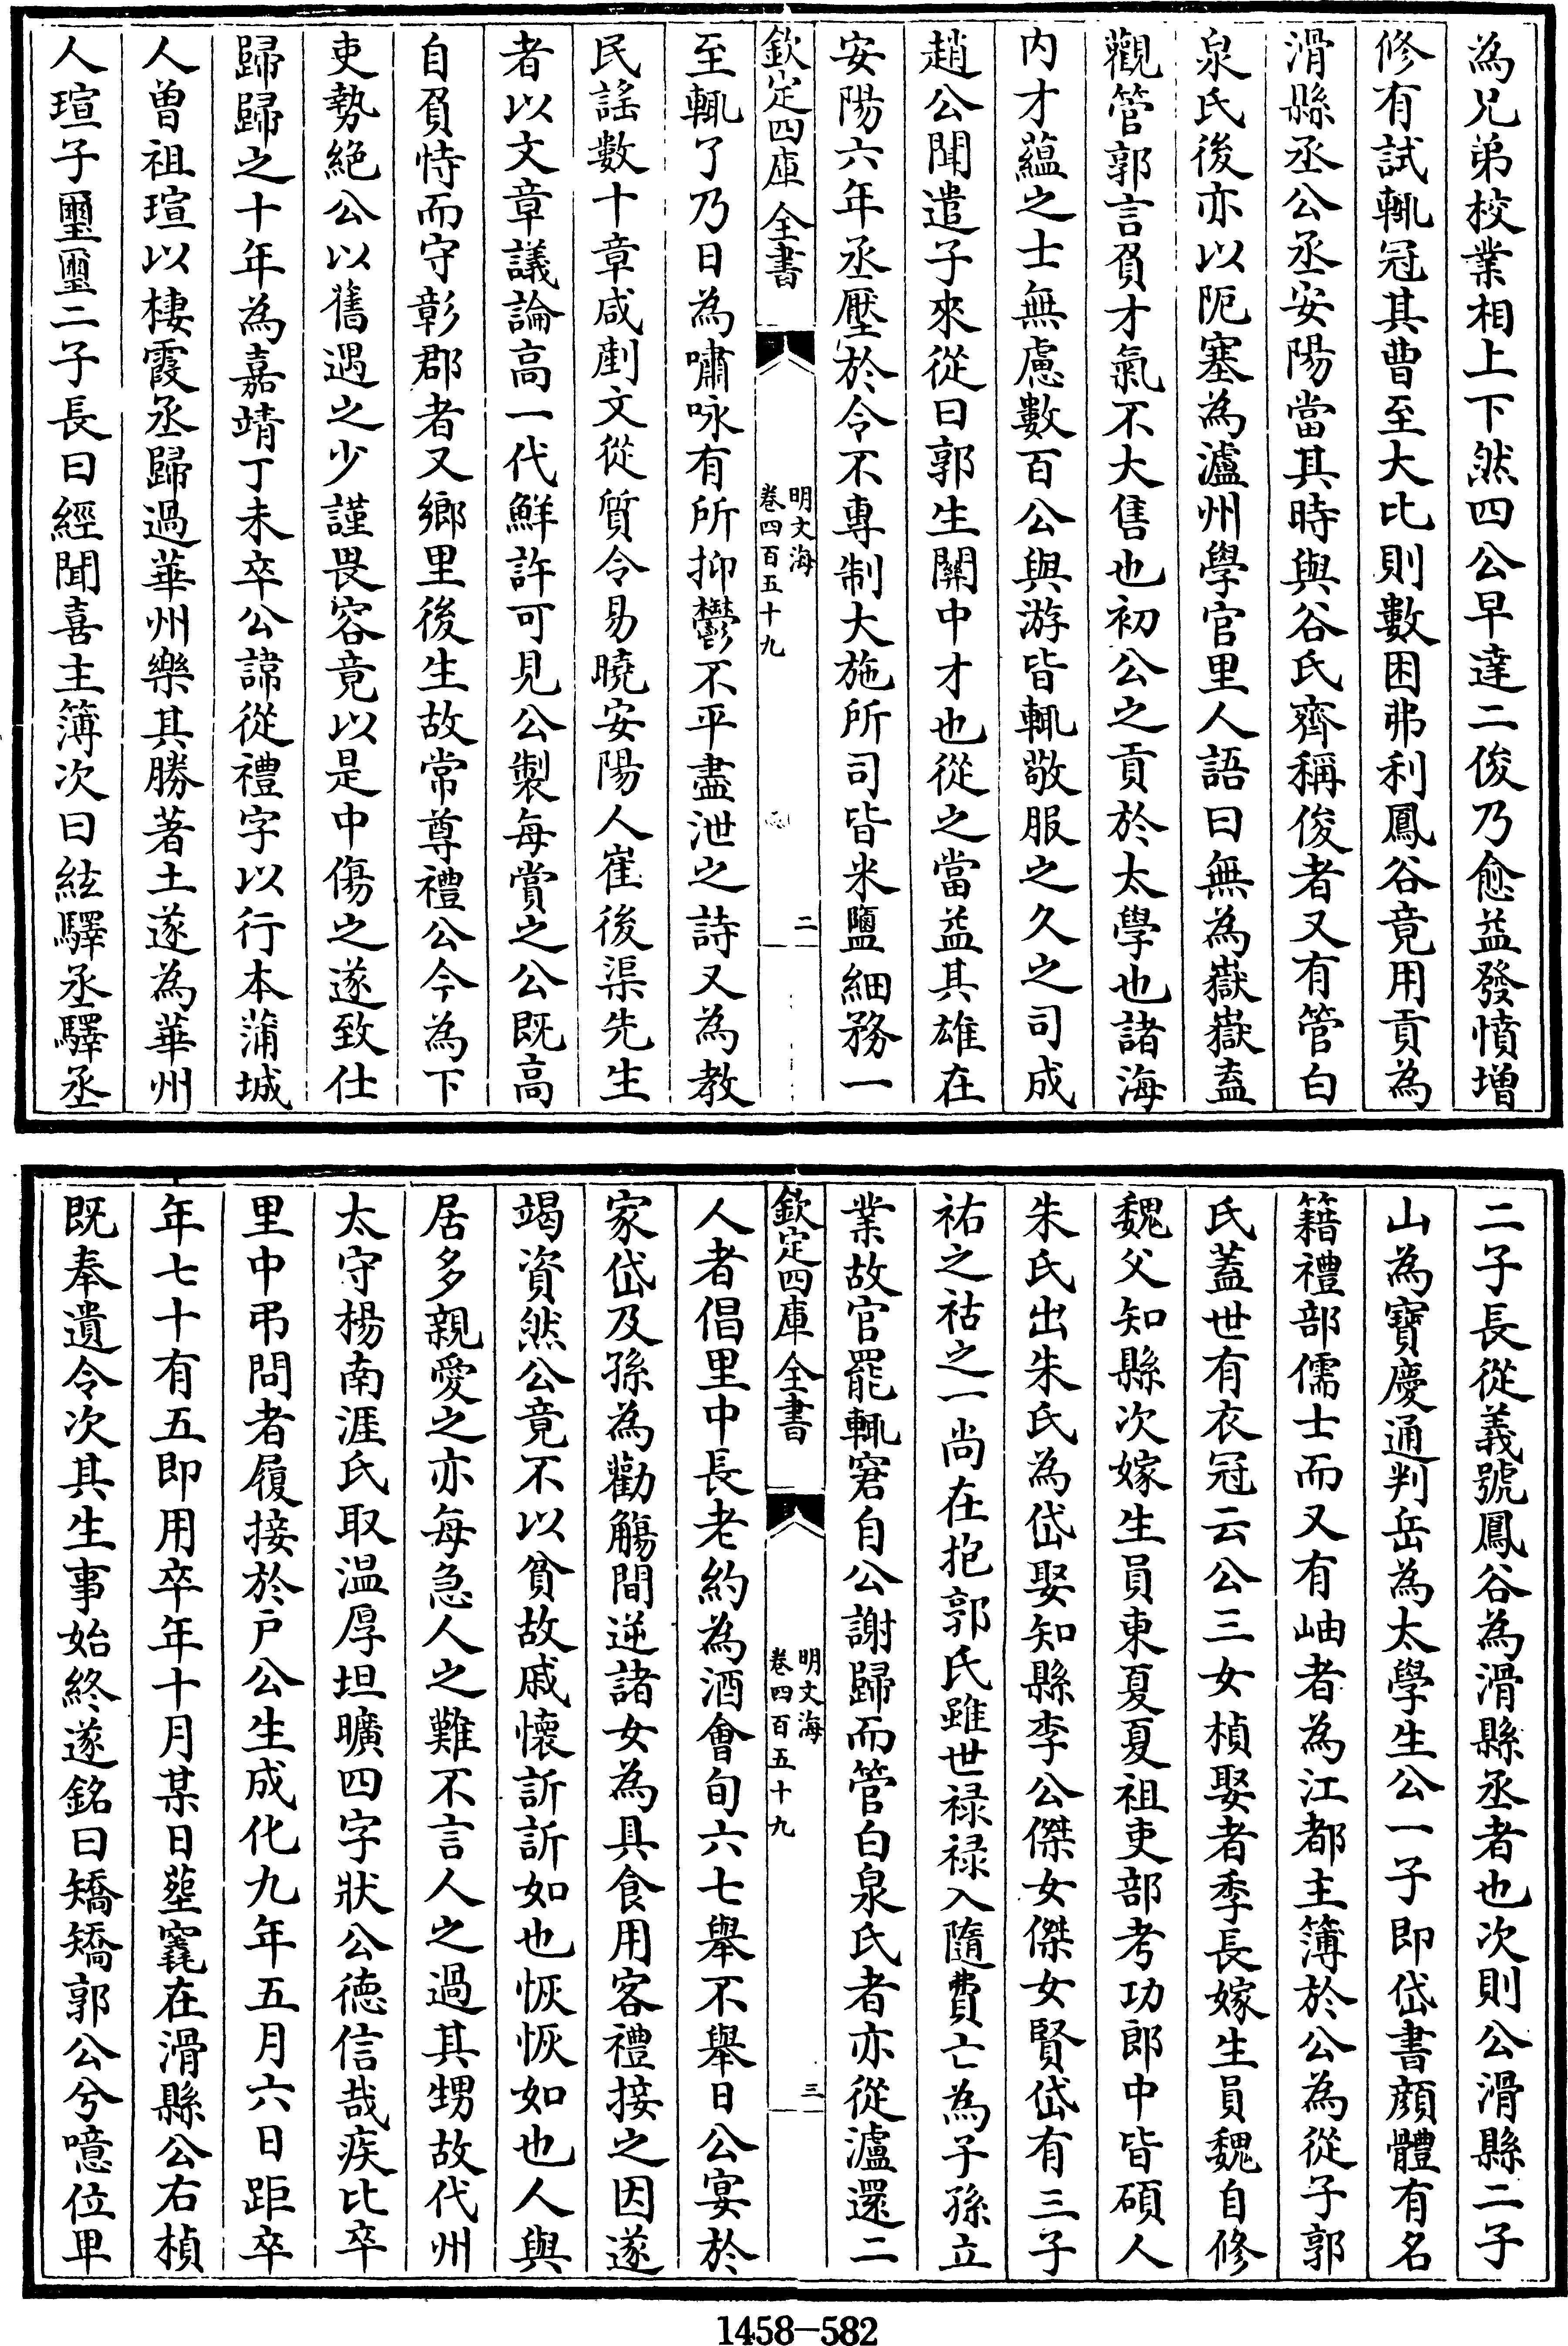 為兄弟校業相上下然四公早達二俊乃愈益發憤增
修有試輒冠其曹至大比則數困弗利鳳谷竟用貢為
滑縣丞公丞安陽當其時與谷氏齊稱俊者又有管白
泉氏後亦以阨塞為瀘州學官里人語曰無為嶽嶽盍
觀管郭言負才氣不大售也初公之貢於太學也諸海
内才蘊之士無慮數百公與游皆輒敬服之久之司成
趙公聞遣子來從曰郭生關中才也從之當益其雄在
安陽六年丞壓於令不專制大施所司皆米鹽細務一
欽定四庫全書
明文海
卷四百五十九
二
至輒了乃日為嘯咏有所抑鬱不平盡泄之詩又為教
民謠數十章咸剷文從質令易曉安陽人崔後渠先生
者以文章議論高一代鮮許可見公製每賞之公既高
自負恃而守彰郡者又鄉里後生故常尊禮公今為下
吏勢絶公以舊遇之少謹畏容竟以是中傷之遂致仕
歸歸之十年為嘉靖丁未卒公諱從禮字以行本蒲城
人曾祖瑄以棲霞丞歸過華州樂其勝著土遂為華州
人瑄子璽璽二子長曰經聞喜主簿次曰絃驛丞驛丞
二子長從義號鳳谷為滑縣丞者也次則公滑縣二子
山為寶慶通判岳為太學生公一子即岱書顔體有名
籍禮部儒士而又有岫者為江都主簿於公為從子郭
氏蓋世有衣冠云公三女楨娶者季長嫁生員魏自修
魏父知縣次嫁生員東夏夏祖吏部考功郎中皆碩人
朱氏出朱氏為岱娶知縣李公傑女傑女賢岱有三子
祐之祜之一尚在抱郭氏雖世禄禄入隨費亡為子孫立
業故官罷輒窘自公謝歸而管白泉氏者亦從瀘還二
欽定四庫全書
明文海
卷四百五十九
三
人者倡里中長老約為酒會旬六七舉不舉日公宴於
家岱及孫為勸觴間逆諸女為具食用客禮接之因遂
竭資然公竟不以貧故戚懷訢訢如也恢恢如也人與
居多親愛之亦每急人之難不言人之過其甥故代州
太守楊南涯氏取温厚坦曠四字狀公德信哉疾比卒
里中弔問者履接於戶公生成化九年五月六日距卒
年七十有五即用卒年十月某日塟窀在滑縣公右楨
既奉遺令次其生事始終遂銘曰矯矯郭公兮噫位卑
1458—582